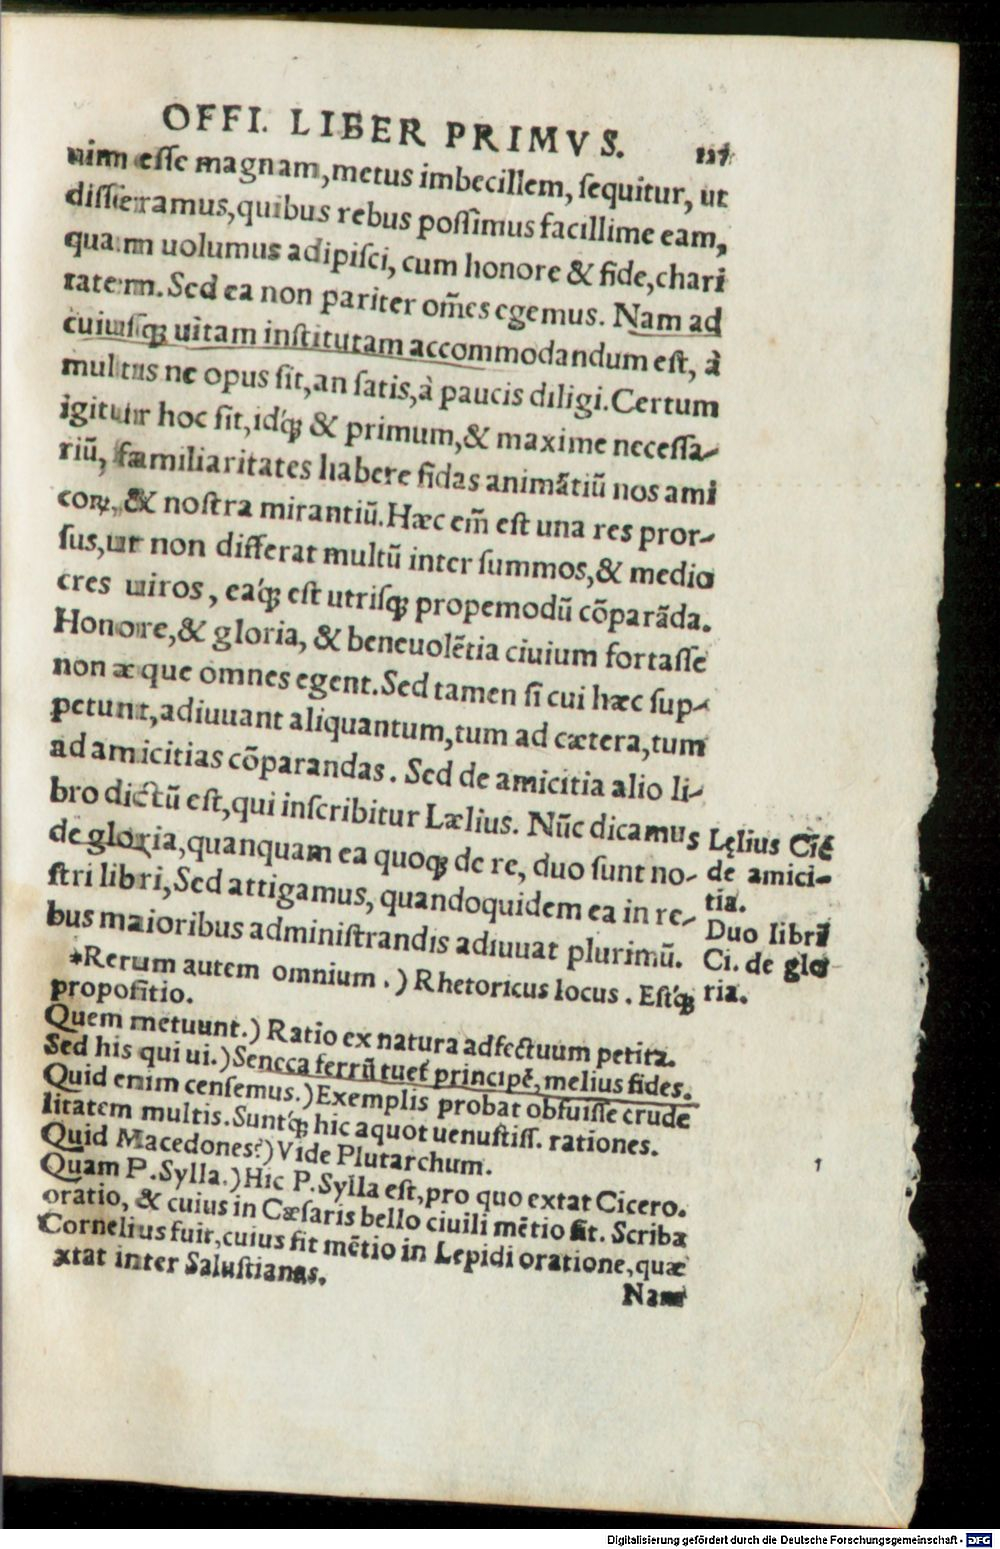 OFFI. LIBER PRIMVS. 127
uim esse magnam, metus imbecillem, sequitur, ut
disseramus, quibus rebus possimus facillime eam,
quam uolumus adipisci, cum honore & fide, chari
tatem. Sed ea non pariter om̃es egemus. Nam ad
cuiusq; uitam institutam accommodandum est, à
multis ne opus sit, an satis, à paucis diligi. Certum
igitur hoc sit, idq́; & primum, & maxime necessa-
riũ, familiaritates habere fidas animãtiũ nos ami
coꝝ, & nostra mirantiũ. Hæc em̃ est una res pror-
sus, ut non differat multũ inter summos, & medio
cres uiros, eaq́; est utrisq; propemodũ cõparãda.
Honore, & gloria, & beneuolẽtia ciuium fortasse
non æque omnes egent. Sed tamen si cui hæc sup-
petunt, adiuuant aliquantum, tum ad cætera, tum
ad amicitias cõparandas. Sed de amicitia alio li-
bro dictũ est, qui inscribitur Lælius. Nũc dicamus
de gloria, quanquam ea quoq; de re, duo sunt no-
stri libri, Sed attigamus, quandoquidem ea in re-
bus maioribus administrandis adiuuat plurimũ.
Lęlius Cić
de amici-
tia.
Duo libri
Ci. de glo
ria.
*Rerum autem omnium.) Rhetoricus locus. Estq́;
propositio.
Quem metuunt.) Ratio ex natura adfectuum petita.
Sed his qui ui.) Seneca ferrũ tuet́ principẽ, melius fides.
Quid enim censemus.) Exemplis probat obfuisse crude
litatem multis. Suntq́; hic aquot uenustiss. rationes.
Quid Macedones?) Vide Plutarchum.
Quam P. Sylla.) Hic P. Sylla est, pro quo extat Cicero.
oratio, & cuius in Cæsaris bello ciuili mẽtio fit. Scriba
Cornelius fuit, cuius fit mẽtio in Lepidi oratione, quæ
xtat inter Salustianas.
Nam
Digitalisierung gefördert durch die Deutsche Forschungsgemeinschaft - DFG